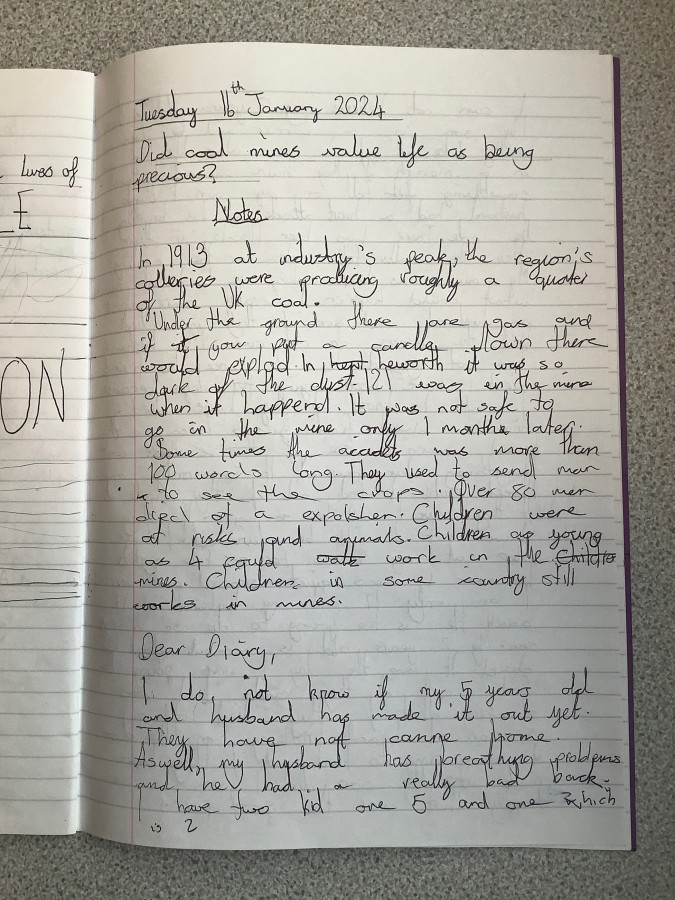 lives of
E
ON
Tuesday 16th January 2024
Did coal mines value life as being
precious?
Notes
In 1913 at industry's peak, the region's
collieries were producing roughly a quater
of the UK coal.
Under the ground there are gas and
if it you put a candle down there
would explod. In hept heworth it was so
dark of the dust. 121 was in the mine
when it happend. It was not safe to
go in the mine only 1 months later.
Some times the accadets was more than
100 words long. They used to send man
to see the crops. Over 80 men
died of a expolsher. Children were
at risks and anymals. Children as young
as 4 could walk work in the Childre
mines. Children in some country still
works in mines.
Dear Diary,
I do not know if my 5 years old
and husband has made it out yet.
They have not canne home.
Aswell, my husband has breathing problems
and he had a really bad back.
I have two kid one 5 and one which
is 2